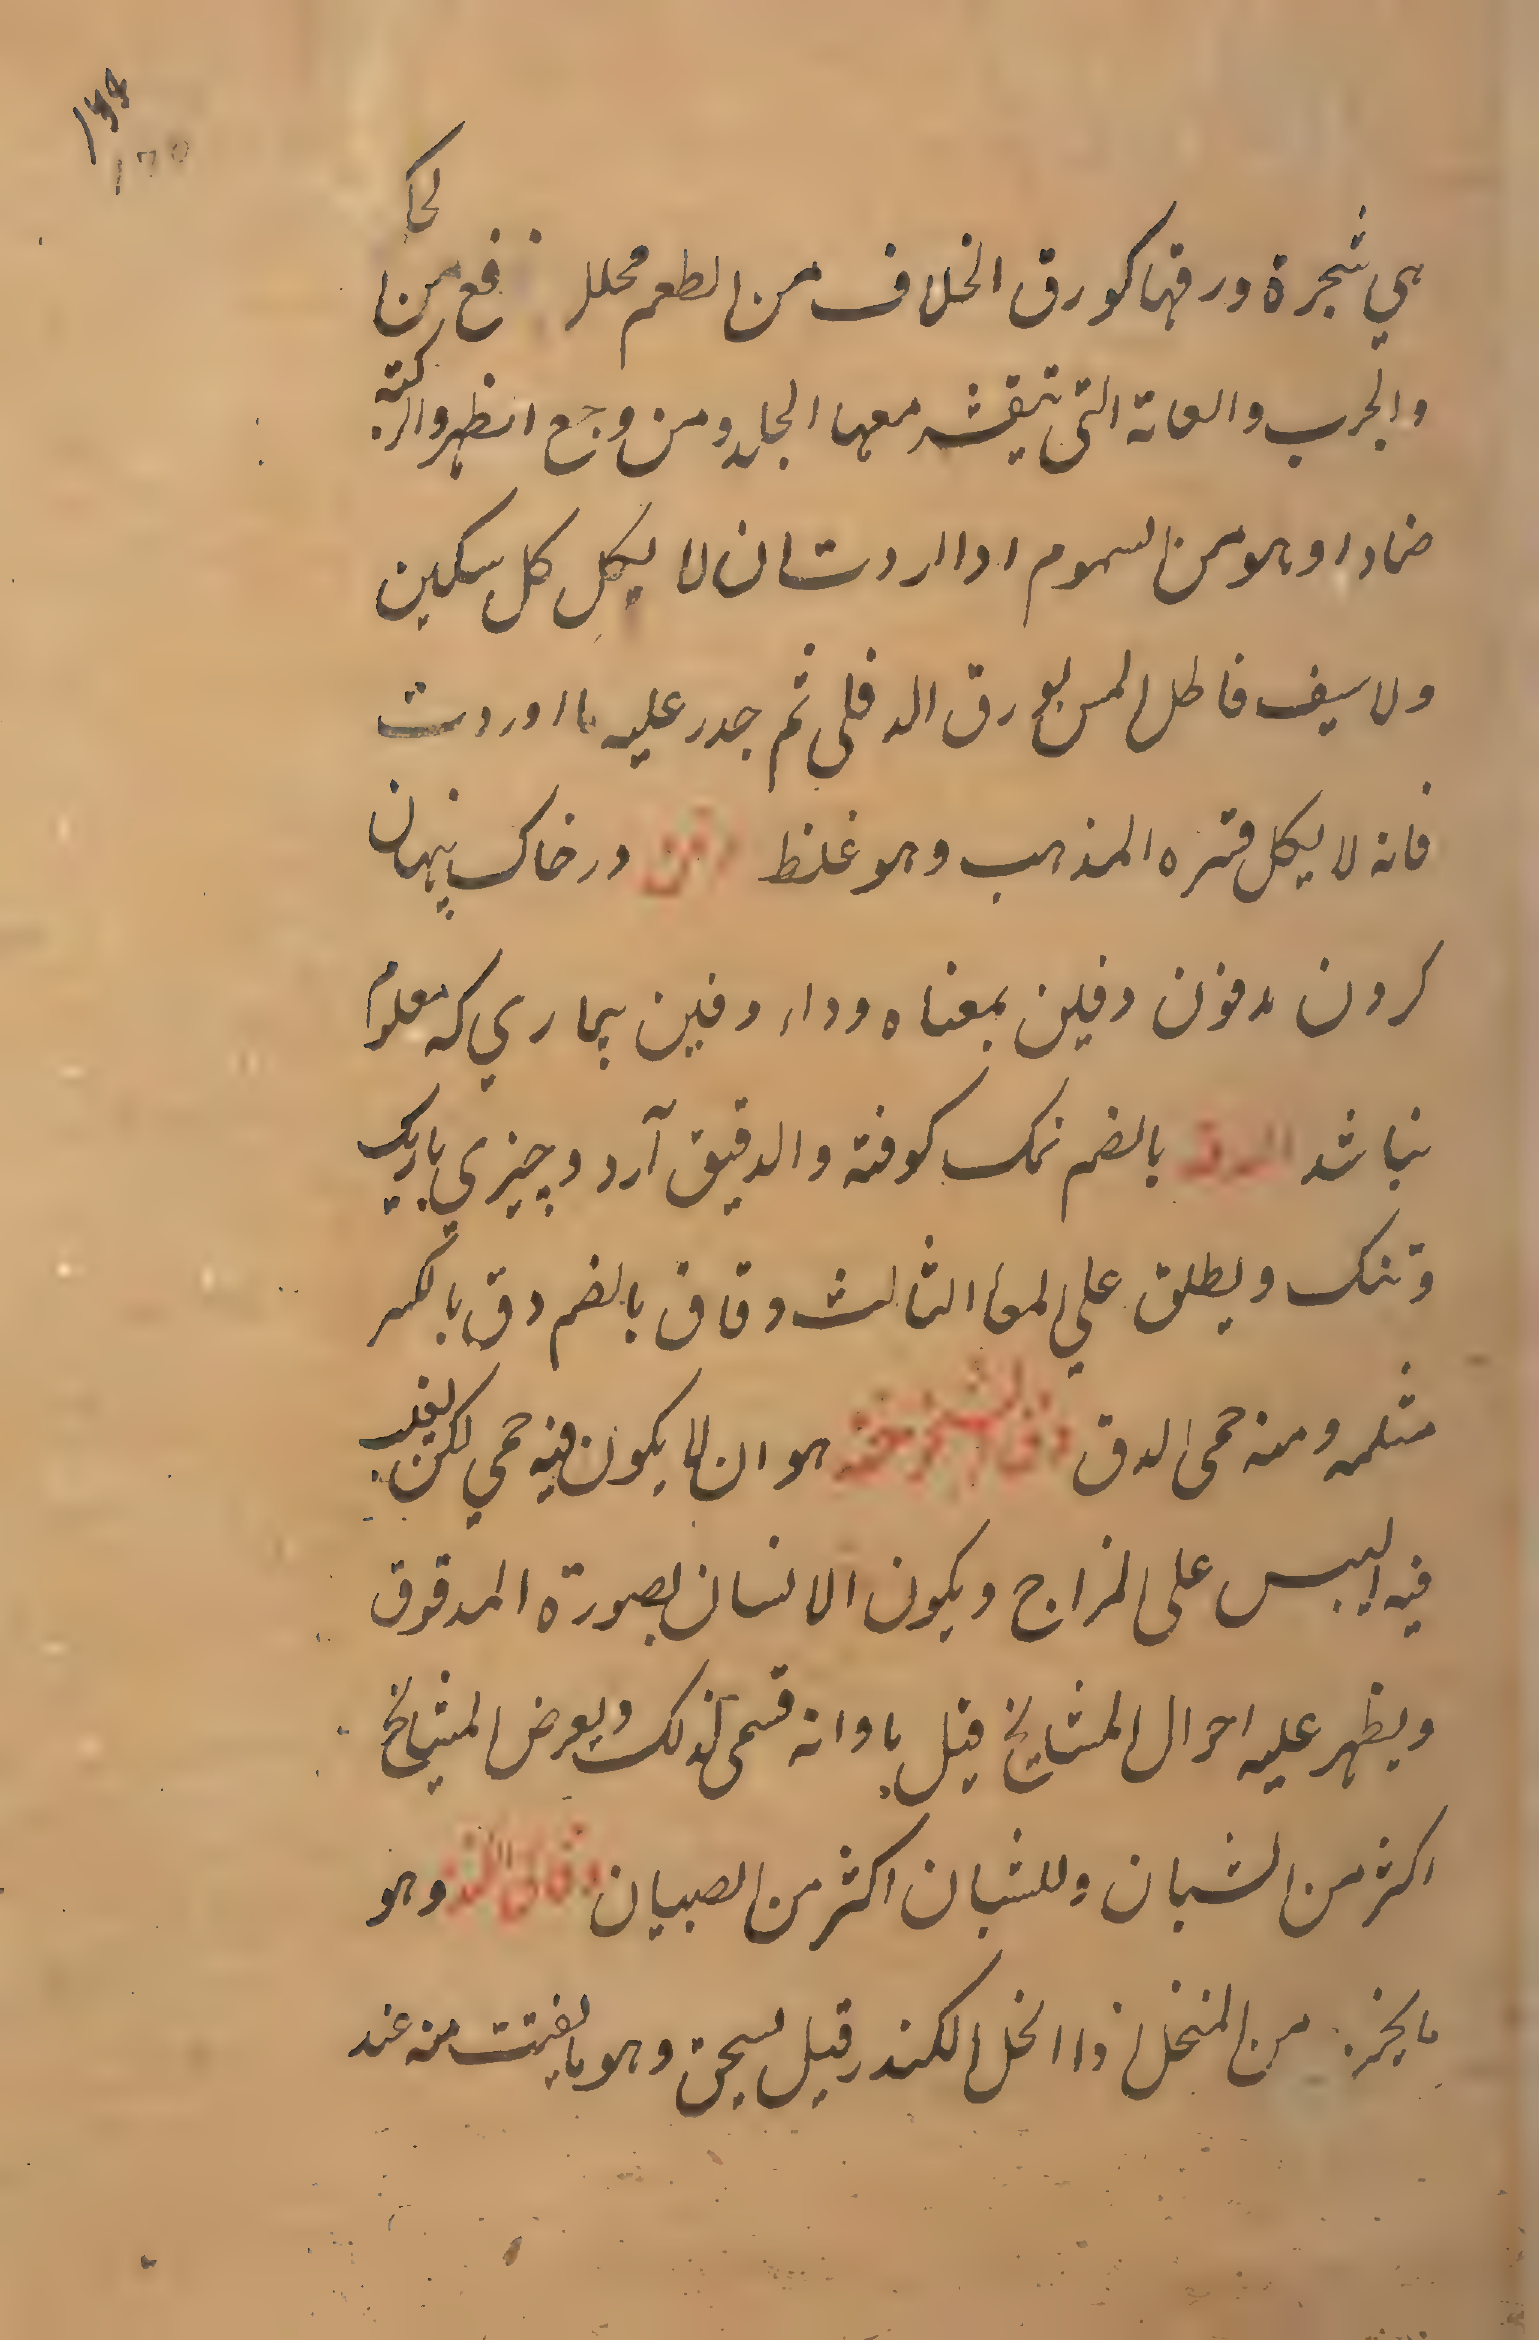 هي شجرة ورقها كورق الخلاف من الطعم محلل نافع من الحكا
والجرب والعانة التى تيقشر معها الجلد ومن وجع الظهر والركبة
ضمادا وهو من السموم اذا اردت ان لا يكل كل سكين
ولا سيف فاطل المسن بورق الدفلى ثم جدر عليه ما اوردت
فانه لا يكل فتره المذهب وهو غلظ دفن در خاك پنهان
كردن مدفون دفين بمعناه وداء دفين بيماري كه معلوم
نباشد الدق بالضم نمك كوفته والدقيق آرد وچيزي باريك
وتنك ويطلق علي المعا الثالث دقاق بالضم دق بالكسر
مثلمه ومنه حمى الدق دق الشيخوخة هو ان لا يكون فيه حمي لكن يغلب
فيه اليبس على المزاج ويكون الانسان بصورة المدقوق
ويظهر عليه احوال المشايخ قبل باوانه فسمى بذلك ويعرض المشايخ
اكثر من الشبان وللشبان اكثر من الصبيان دقاق الكندر وهو
ما يخرج من المنخل اذا انخل الكندر قبل يسحق وهو ما يفتت منه عند